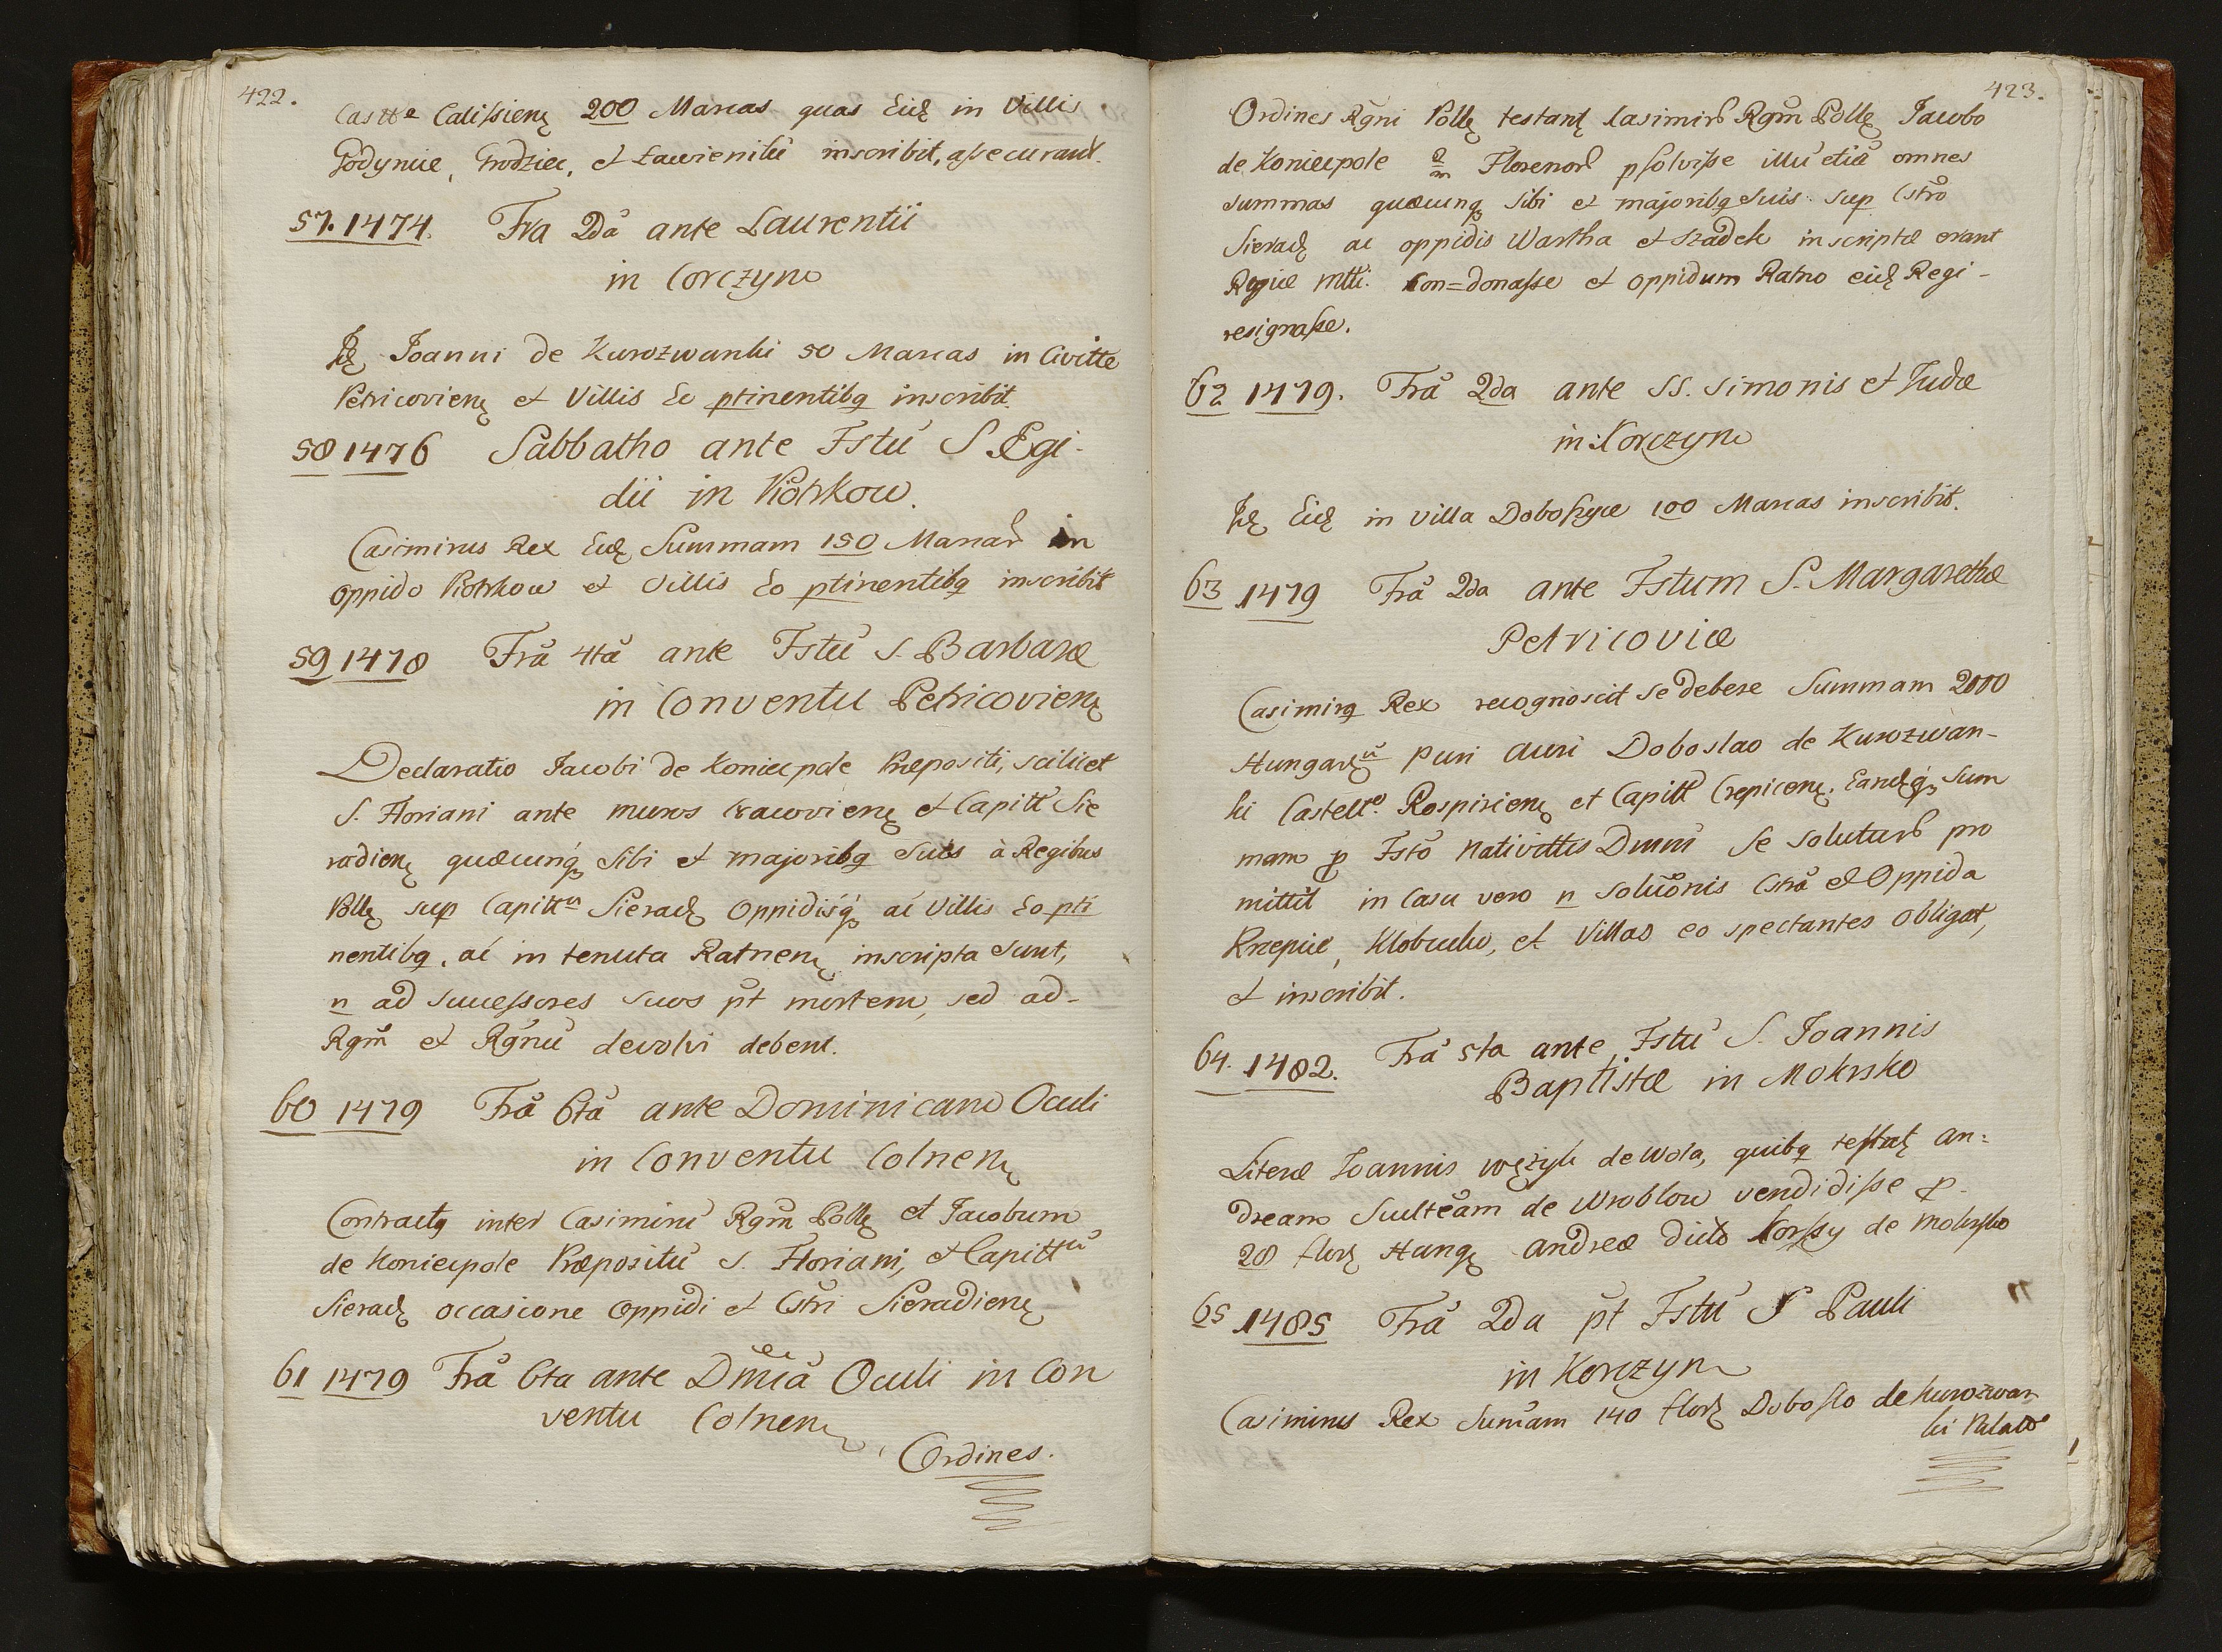 422.
Castte Calissieną 200 Marcas quas Eidę in Villis
Godynice, Grodziec, et Ławieniku inscribit, assecurant.
57. 1474. Fra 2da ante Laurentii
in Corczyno
Idę Joanni de Kurozwanki 50 Marcas in Civitte
Petricovienę et Villis Eo ptinentibq inscribit.
58 1476 Sabbatho ante Fstu S Egi-
dii in Piotrkow.
Casimirus Rex Eidę Summam 150 Marcar in
oppido Piotrkow et Villis Eo ptinentibq inscribit
59 1478 Fra 4ta ante Fstu S. Barbaræ
in Conventu Petricovienę
Declaratio Jacobi de Koniecpole Præpositi, scilicet
S. Floriani ante muros Cracovienę et Capitt Sie
radienę quæcunq sibi et majoribq suis à Regibus
Pollę sup Capittu Sieradę Oppidisq ac Villis Eo pti
nentibq, ac in tenuta Ratnenę inscripta sunt,
n ad successores suos pt mortem, sed ad-
Rgm et Rgnu devolvi debent.
60 1479 Fra 6ta ante Dominicano Oculi
in Conventu Colnenę
Contractq inter Casimiru Rgm Pollę et Jacobum
de Koniecpole Præpositu S. Floriani, et Capittu
Sieradę occasione Oppidi et Cstri Sieradienę
61 1479 Fra 6ta ante Dnica Oculi in Con
ventu Colnenę
Ordines.
423.
Ordines Rgni Pollę testantę Casimir Rgm Pollę Jacobo
de Koniecpole 2/m Florenor psolvisse illu etia omnes
summas quæcunq sibi et majoribq suis sup Cstro
Sieradę ac oppidis Wartha et Szadek inscriptæ erant
Regiæ Mtti. Con=donasse et oppidum Ratno eidę Regi-
resignasse.
62 1479. Fra 2da ante SS. Simonis et Judæ
in Korczyn
Idę Eidę in villa Dobossyce 100 Marcas inscribit.
63 1479 Fra 2da ante Fstum S. Margarethæ
Petricoviæ
Casimirq Rex recognoscit se debere Summam 2000
Hungarę puri auri Doboslao de Kurozwan-
ki Castelto. Rospirienę et Capitt Crepicenę. Eandęq Sum
mam p Fsto Nativittis Dnni se soluturr pro
mittit in Casu vero n soluonis Cstra et Oppida
Krzepice, Klobucko, et Villas eo spectantes obligat,
et inscribit.
64. 1482. Fra 5ta ante Fstu S. Joannis
Baptistæ in Mokrsko
Literæ Joannis Wężyk de Wola, quibq testatę An=
dream Sculteam de Wroblow vendidisse p-
28 florę Hungę Andreæ dicto Korssy de Mokrsko
65 1485 Fra 2da pt Fstu S Pauli
in Korczyn
Casimirus Rex Sumam 140 florę Doboslo de Kurozwan
ki Palato